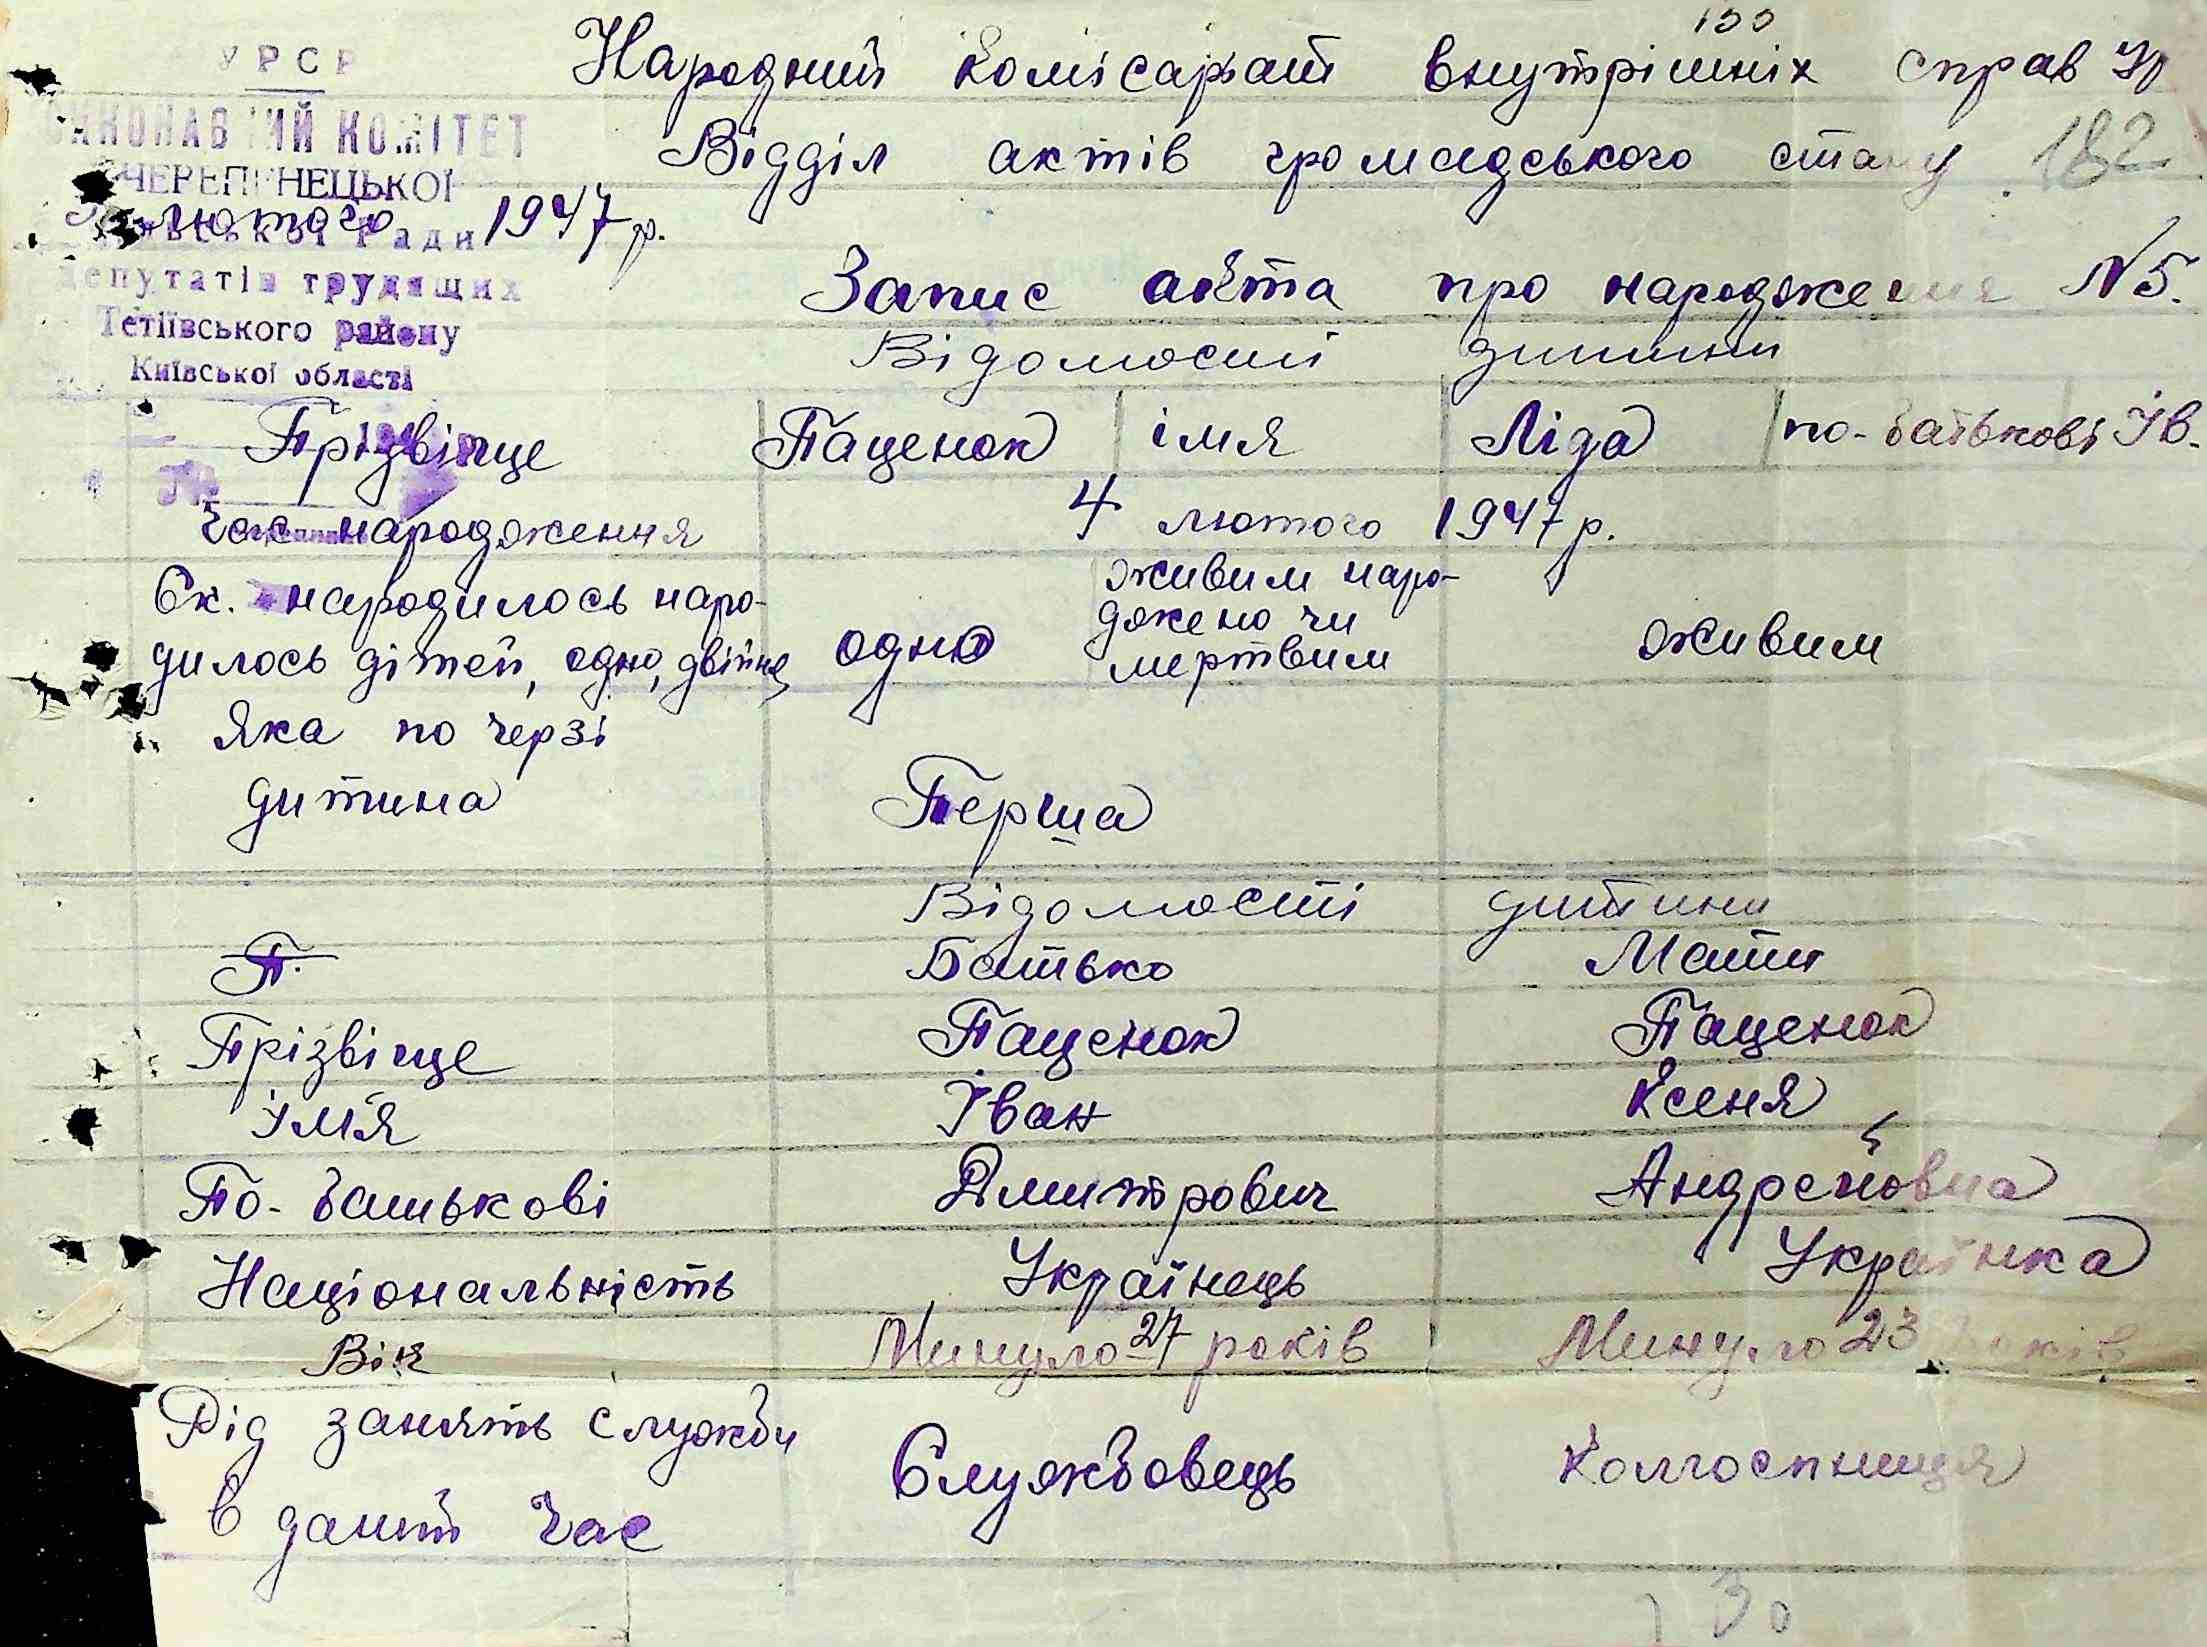 155
Народний комісарьат внутрішніх справ
Відділ актів громадського стану 182
УРСР
ВИКОНАВЧИЙ КОМІТЕТ
ЧЕРЕПИНЕЦЬКОЇ
лютого 1947 р.
Ради
депутатів трудящих
Тетіївського району
Київської області
Запис акта про народження N5.
Відомості дитини
Прізвіще Паценок імя Ліда по-батькові Ів.
Час народження 4 лютого 1947 р.
Ск. народилось наро-
дилось дітей, одно, двійня, одно
живим наро-
джено чи
мертвим
живим
Яка по черзі
дитина Перша
Відомості дитини
П. Батько Мати
Прізвіще Паценок Паценок
Ім'я Іван Ксеня
По-батькові Дмитрович Андрейовна
Національність Українець Українка
Вік Минуло 27 років Минуло 23 років
Рід занять служби
в даний час Службовець Колгоспниця
30